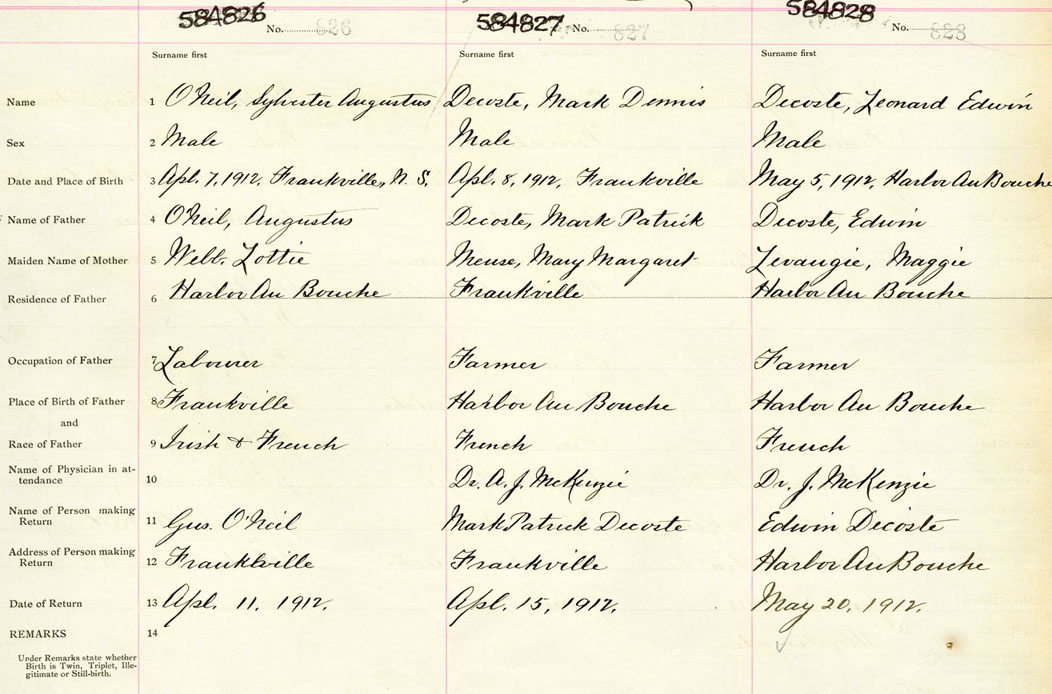 584826 584827 584828
No. 826 No. 827 No. 828
Surname first Surname first Surname first
Name 1 O'Neil, Sylvester Augustus Decoste, Mark Dennis Decoste, Leonard Edwin
Sex 2 Male Male Male
Date and Place of Birth 3 Apl. 7, 1912. Frankville, N. S. Apl. 8, 1912, Frankville May 5, 1912, Harbor Au Bouche
Name of Father 4 O'Neil, Augustus Decoste, Mark Patrick Decoste, Edwin
Maiden Name of Mother 5 Webb, Lottie Meuse, Mary Margaret Levangie, Maggie
Residence of Father 6 Harbor Au Bouche Frankville Harbor Au Bouche
Occupation of Father 7 Labourer Farmer Farmer
Place of Birth of Father 8 Frankville Harbor Au Bouche Harbor Au Bouche
and
Race of Father 9 Irish & French French French
Name of Physician in at-
tendance 10 Dr. A. J. McKenzie Dr. J. McKenzie
Name of Person making
Return 11 Gus. O'Neil Mark Patrick Decoste Edwin Decoste
Address of Person making
Return 12 Frankville Frankville Harbor Au Bouche
Date of Return 13 Apl. 11. 1912. Apl. 15, 1912. May 20, 1912.
REMARKS 14
Under Remarks state whether
Birth is Twin, Triplet, Ille-
gitimate or Still-birth.